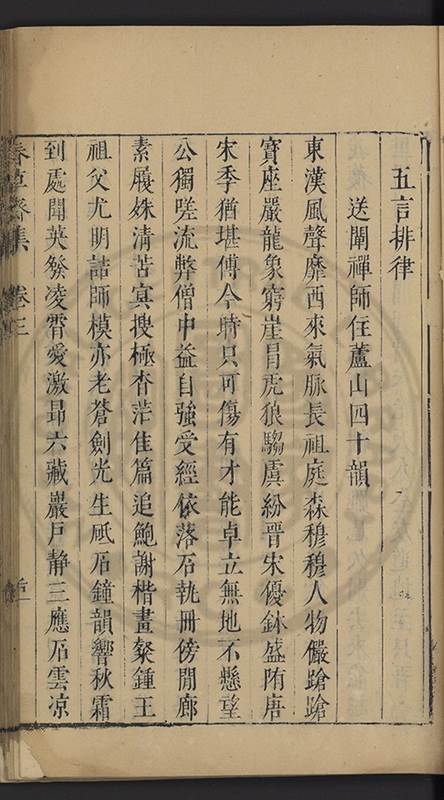 五言排律
送闡禪師住蘆山四十韻
東漢風聲靡西來氣脉長祖庭森穆穆人物儼蹌蹌
寳座嚴龍象窮崖冒虎狼騶虞紛晉宋優鉢盛隋唐
宋季猶堪傳今時只可傷有才能卓立無地不懸望
公獨嗟流弊僧中益自強受經依落石執冊傍閒廊
素履姝清苦㝠搜極杳茫佳篇追鮑謝楷畫粲鍾王
祖父尤明詰師模亦老蒼劍光生砥石鐘韻響秋霜
到處聞英發凌霄愛激昻六藏巖戸静三應石雲凉
春草齋集 卷三